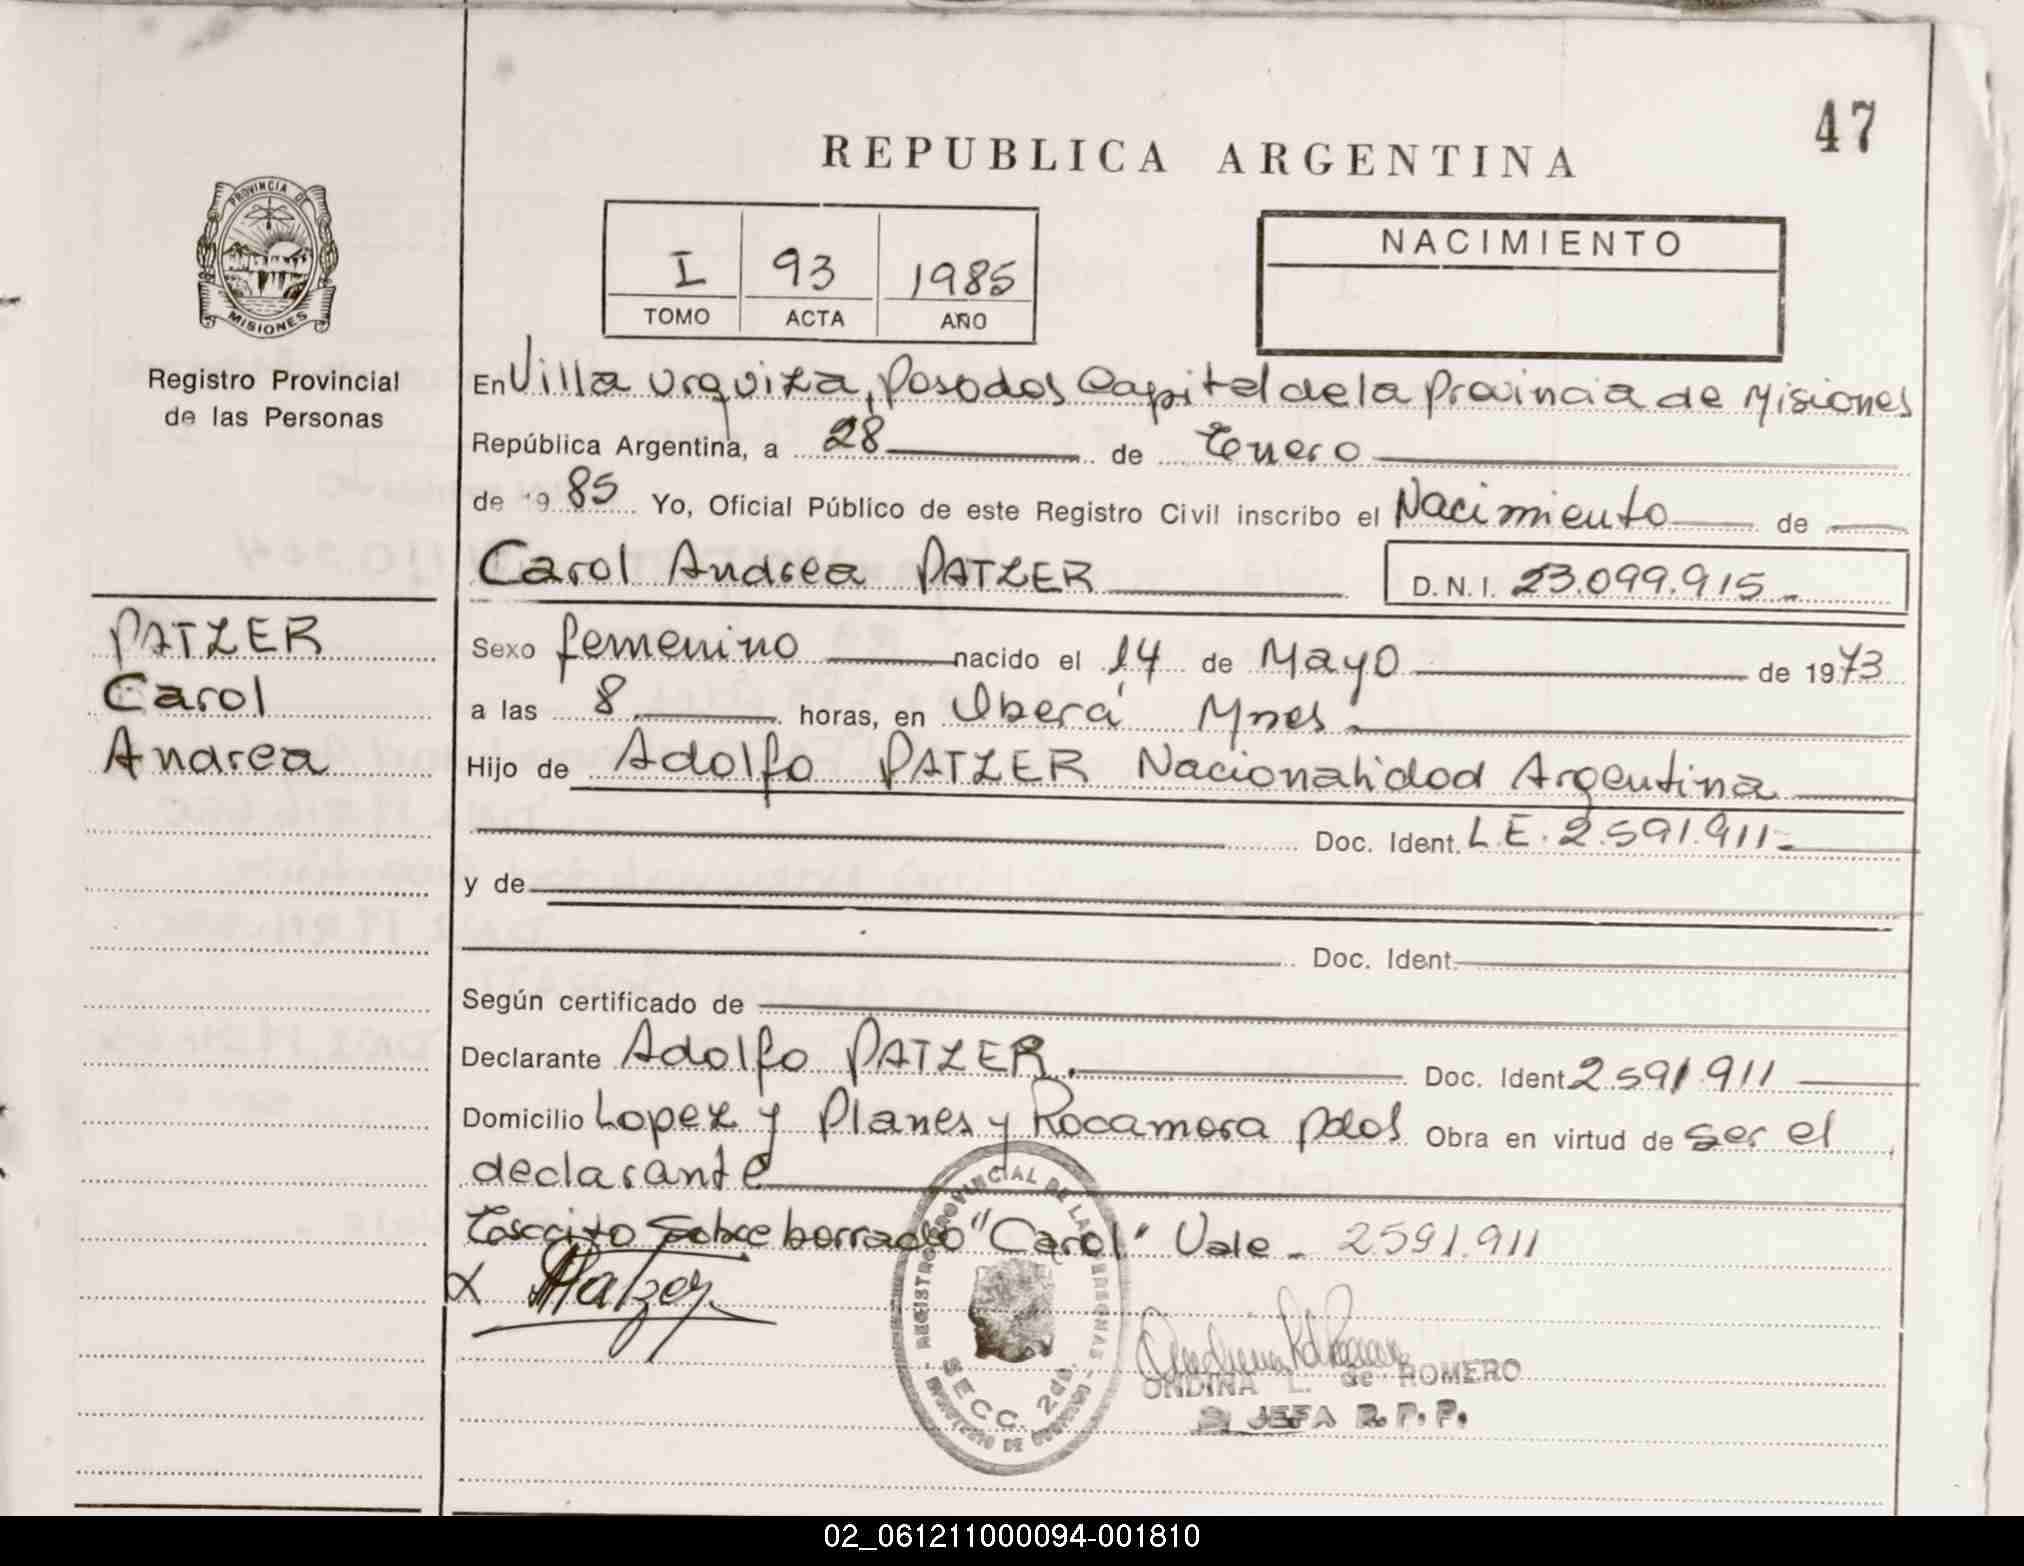 47
REPUBLICA ARGENTINA
PROVINCIA DE
MISIONES
Registro Provincial
de las Personas
I 93 1985
TOMO ACTA AÑO
NACIMIENTO
En Villa Urquiza, Posadas Capital de la Provincia de Misiones
República Argentina, a 28 de Enero
de 1985 Yo, Oficial Público de este Registro Civil inscribo el Nacimiento de
Carol Andrea PATZER D.N.I. 23.099.915
PATZER
Carol
Andrea
Sexo femenino nacido el 14 de Mayo de 1973
a las 8 horas, en Oberá Mnes.
Hijo de Adolfo PATZER Nacionalidad Argentina
Doc. Ident. L.E. 2.591.911
y de
Doc. Ident.
Según certificado de
Declarante Adolfo PATZER. Doc. Ident 2.591.911
Domicilio Lopez y Planes y Rocamora Pdas Obra en virtud de ser el
declarante
Escrito sobre borrado "Carol" Vale - 2591.911
x APatzer
REGISTRO PROVINCIAL DE LAS PERSONAS
SECC. 2da.
ONDINA L. de ROMERO
JEFA R.P.P.
02_061211000094-001810